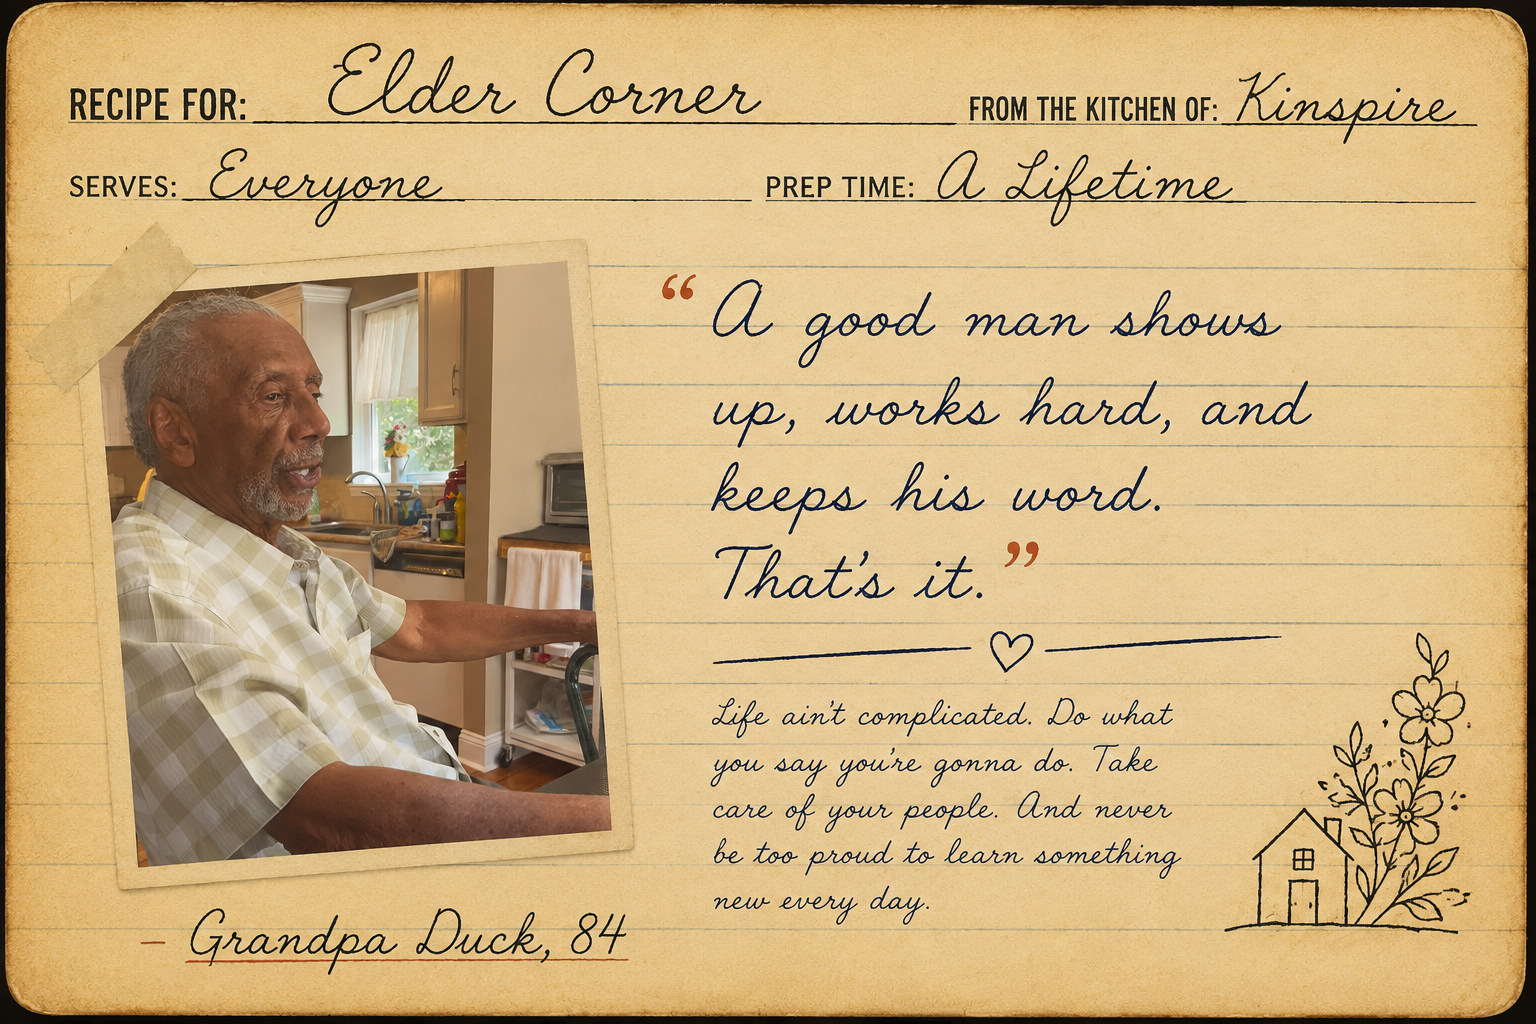 RECIPE FOR: Elder Corner
FROM THE KITCHEN OF: Kinspire
SERVES: Everyone
PREP TIME: A Lifetime
“A good man shows
up, works hard, and
keeps his word.
That's it.”
Life ain't complicated. Do what
you say you're gonna do. Take
care of your people. And never
be too proud to learn something
new every day.
– Grandpa Duck, 84